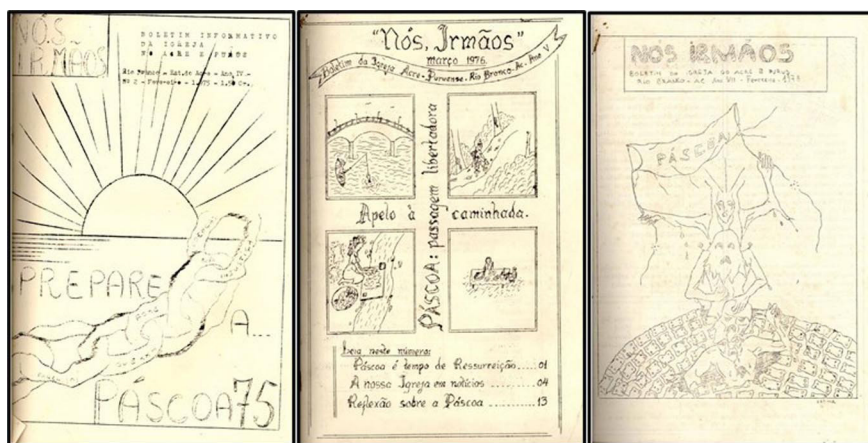 NÓS
IRMÃOS
BOLETIM INFORMATIVO
DA IGREJA
NO ACRE E PURÚS
Rio Branco - Est. do Acre - Ano IV -
Nº 2 - Fevereiro - 1.975 - 1,50 Cr.
PREPARE
A...
PÁSCOA 75
"Nós, Irmãos"
março 1976.
Boletim da Igreja Acre-Puruense - Rio Branco - Ac - Ano V
PÁSCOA: passagem libertadora
Apelo à caminhada.
Leia neste número:
Páscoa é tempo de Ressurreição.....01
A nossa Igreja em notícios.......04
Reflexão sobre a Páscoa..........13
NOS IRMÃOS
BOLETIM DA IGREJA DO ACRE E PURUS
RIO BRANCO - AC
PÁSCOA